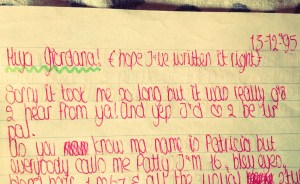 13-12-'95
Hiya Giordana! (hope I've written it right)
Sorry it took me so long but it was really gr8
2 hear from ya! And yep I'd ♡ 2 be ur
pal.
Do you know my name is Patricia but
everybody calls me Patty I'm 16, blew eyed,